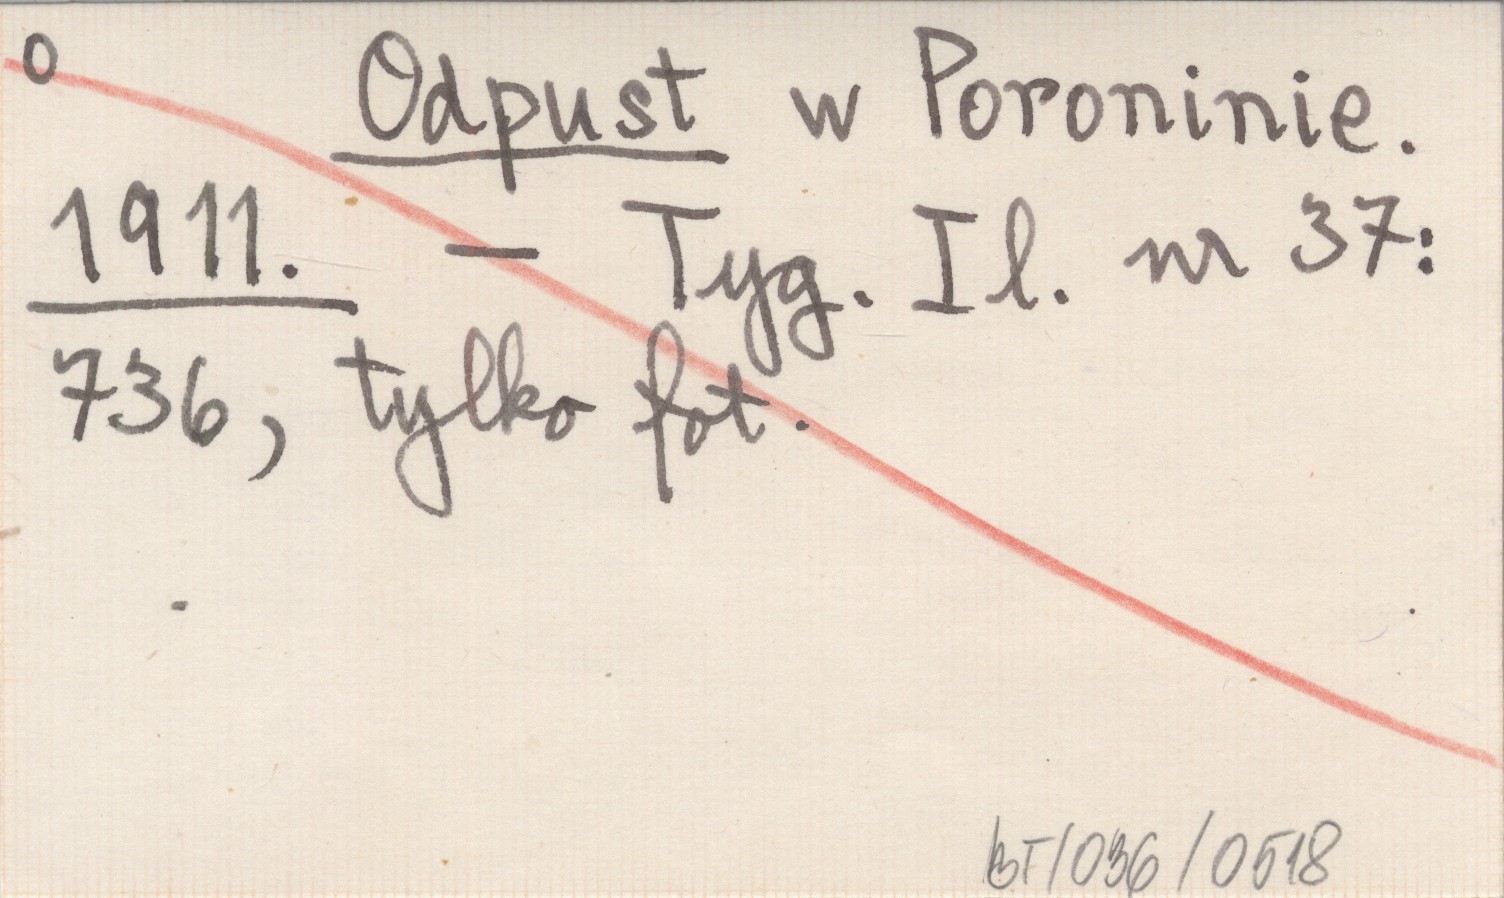 o Odpust w Poroninie.
1911. — Tyg. Il. nr 37:
736, tylko fot.
BT/036/0518